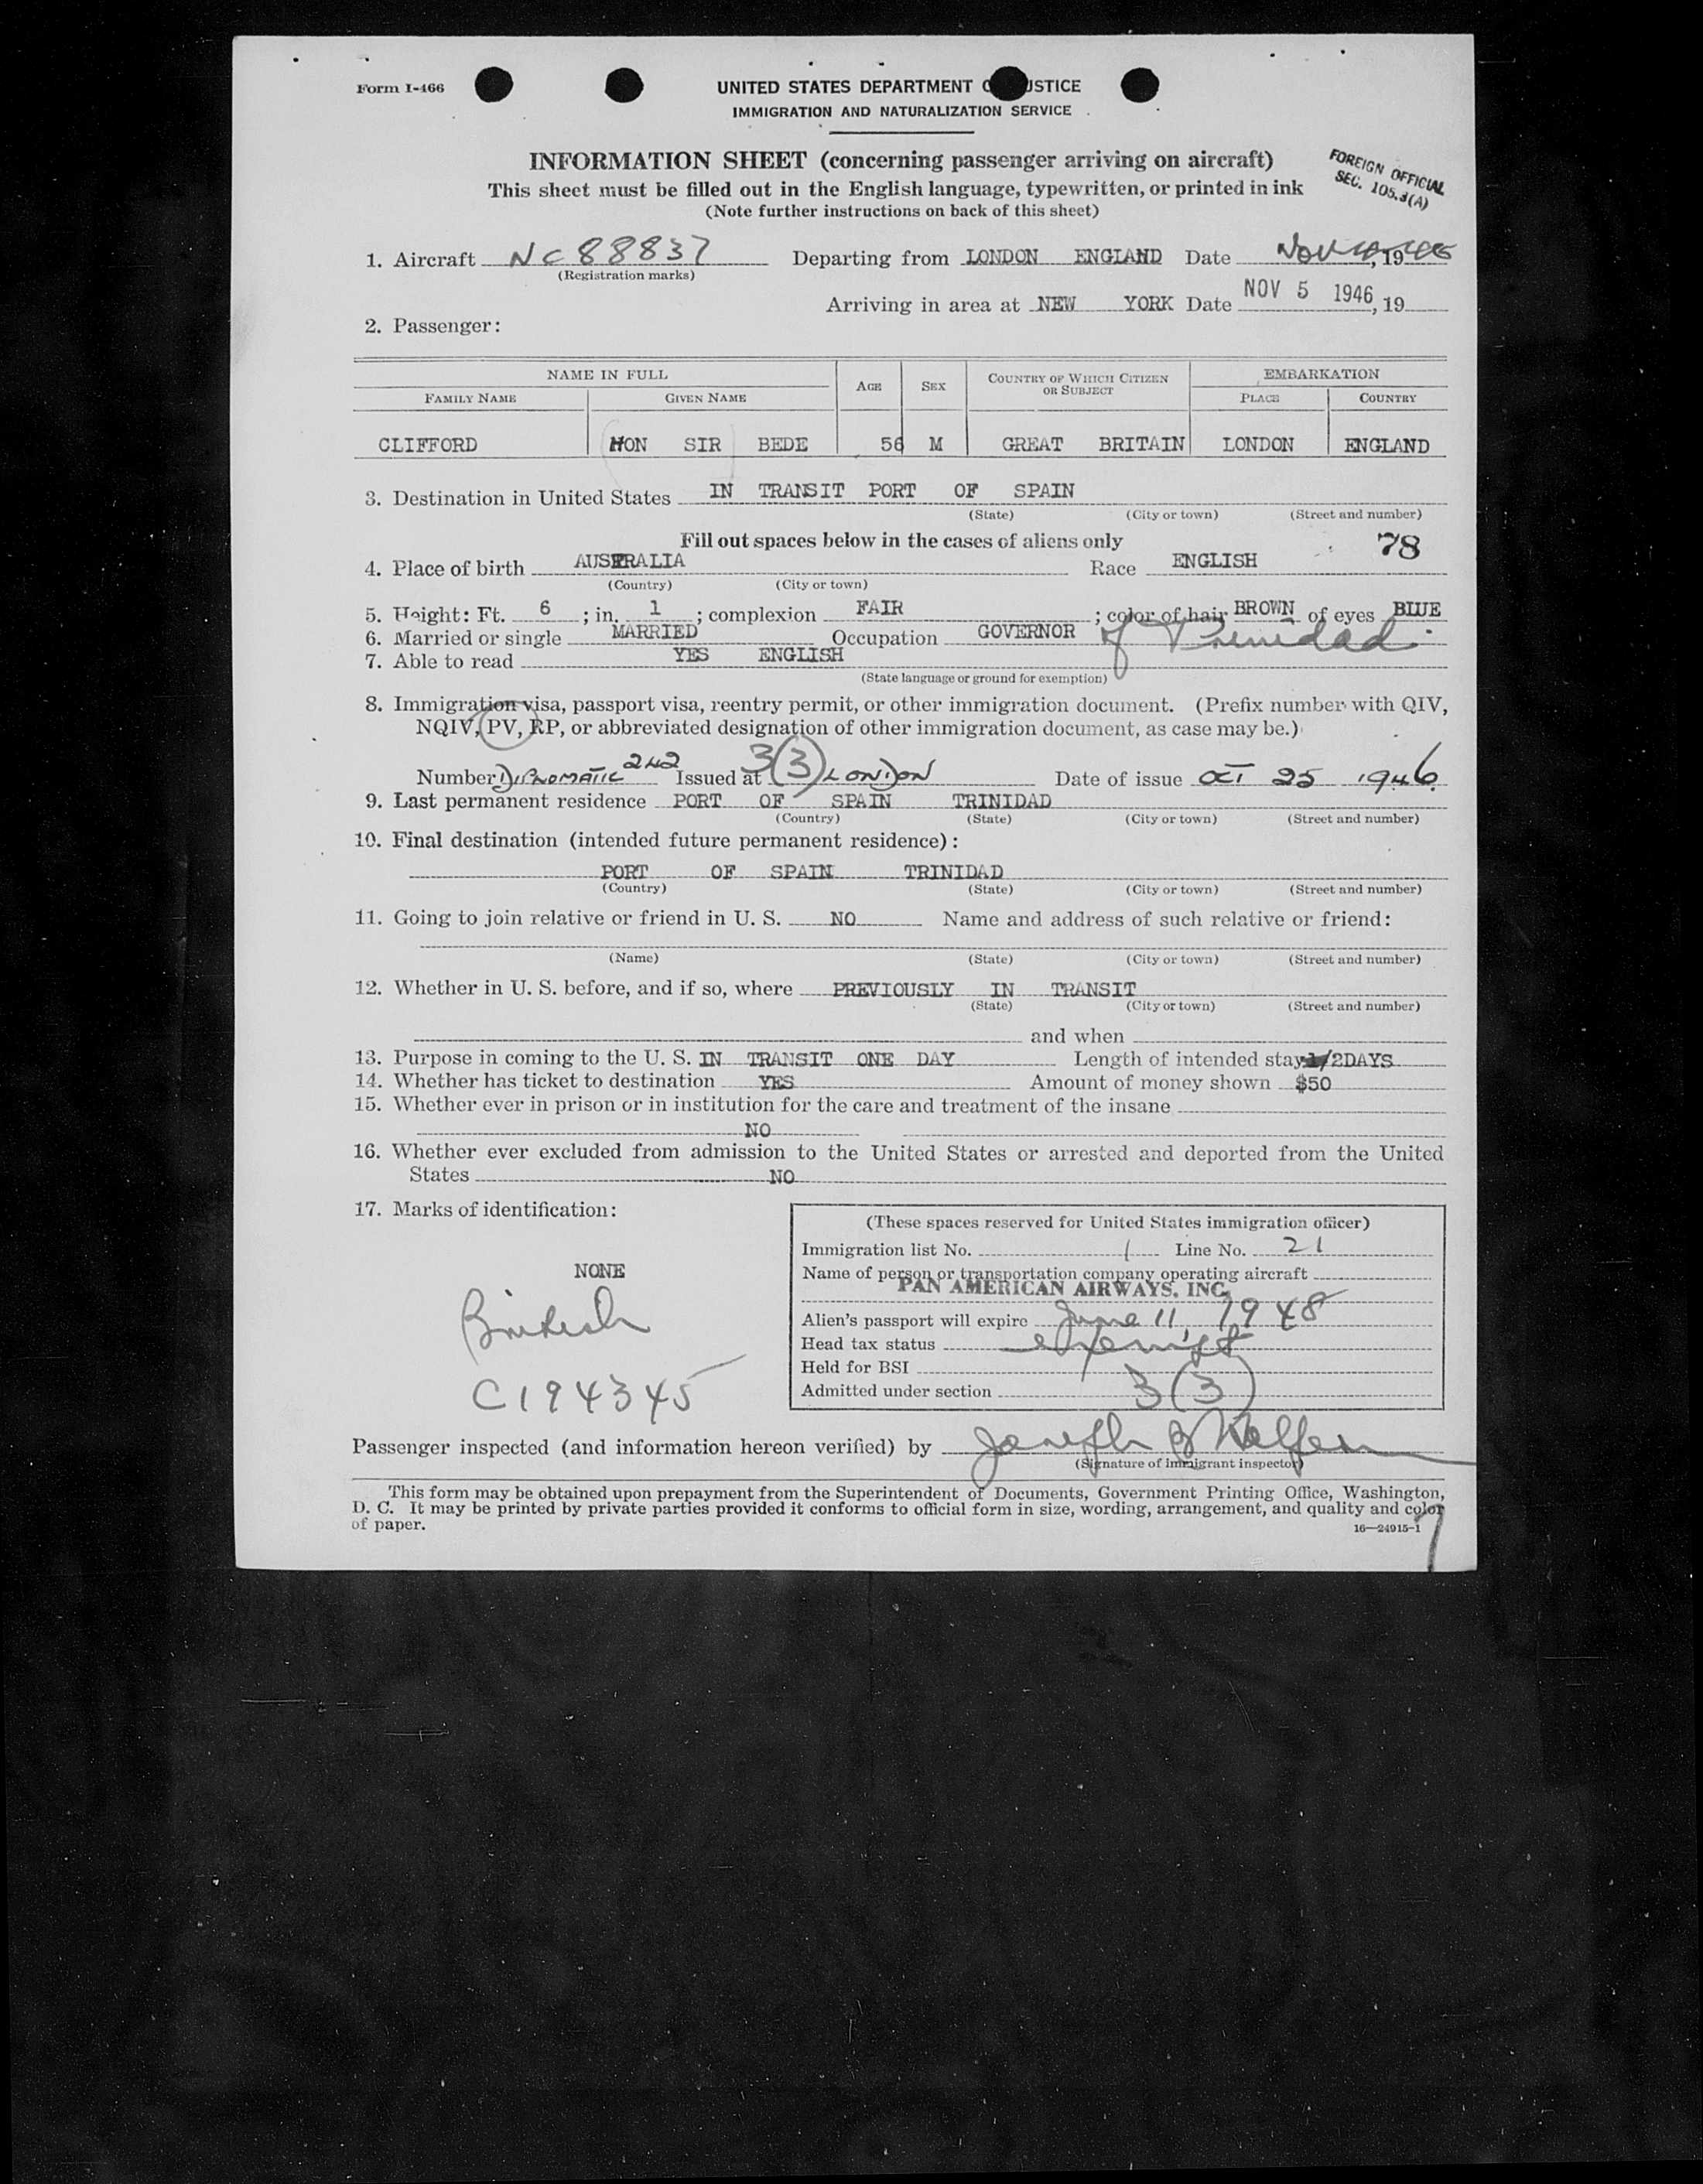 Form I-466
UNITED STATES DEPARTMENT JUSTICE
IMMIGRATION AND NATURALIZATION SERVICE
INFORMATION SHEET (concerning passenger arriving on aircraft)
This sheet must be filled out in the English language, typewritten, or printed in ink
(Note further instructions on back of this sheet)
FOREIGN OFFICIAL
SEC. 105.3(A)
1. Aircraft NC88837 Departing from LONDON ENGLAND Date Nov , 19
(Registration marks)
Arriving in area at NEW YORK Date NOV 5 1946, 19
2. Passenger:
NAME IN FULL AGE SEX COUNTRY OF WHICH CITIZEN OR SUBJECT EMBARKATION
FAMILY NAME GIVEN NAME PLACE COUNTRY
CLIFFORD HON SIR BEDE 56 M GREAT BRITAIN LONDON ENGLAND
3. Destination in United States IN TRANSIT PORT OF SPAIN
(State) (City or town) (Street and number)
Fill out spaces below in the cases of aliens only
78
4. Place of birth AUSTRALIA Race ENGLISH
(Country) (City or town)
5. Height: Ft. 6 ; in. 1 ; complexion FAIR ; color of hair BROWN of eyes BLUE
6. Married or single MARRIED Occupation GOVERNOR of Trinidad
7. Able to read YES ENGLISH
(State language or ground for exemption)
8. Immigration visa, passport visa, reentry permit, or other immigration document. (Prefix number with QIV,
NQIV, PV, RP, or abbreviated designation of other immigration document, as case may be.)
Number DIPLOMATIC 242 Issued at 3(3) LONDON Date of issue OCT 25 1946
9. Last permanent residence PORT OF SPAIN TRINIDAD
(Country) (State) (City or town) (Street and number)
10. Final destination (intended future permanent residence):
PORT OF SPAIN TRINIDAD
(Country) (State) (City or town) (Street and number)
11. Going to join relative or friend in U. S. NO Name and address of such relative or friend:
(Name) (State) (City or town) (Street and number)
12. Whether in U. S. before, and if so, where PREVIOUSLY IN TRANSIT
(State) (City or town) (Street and number)
and when
13. Purpose in coming to the U. S. IN TRANSIT ONE DAY Length of intended stay /2DAYS
14. Whether has ticket to destination YES Amount of money shown $50
15. Whether ever in prison or in institution for the care and treatment of the insane
NO
16. Whether ever excluded from admission to the United States or arrested and deported from the United
States NO
17. Marks of identification:
NONE
British
C194345
(These spaces reserved for United States immigration officer)
Immigration list No. 1 Line No. 21
Name of person or transportation company operating aircraft
PAN AMERICAN AIRWAYS, INC.
Alien's passport will expire June 11, 1948
Head tax status exempt
Held for BSI
Admitted under section 3(3)
Passenger inspected (and information hereon verified) by Joseph
(Signature of immigrant inspector)
This form may be obtained upon prepayment from the Superintendent of Documents, Government Printing Office, Washington,
D. C. It may be printed by private parties provided it conforms to official form in size, wording, arrangement, and quality and color
of paper.
16—24915-1